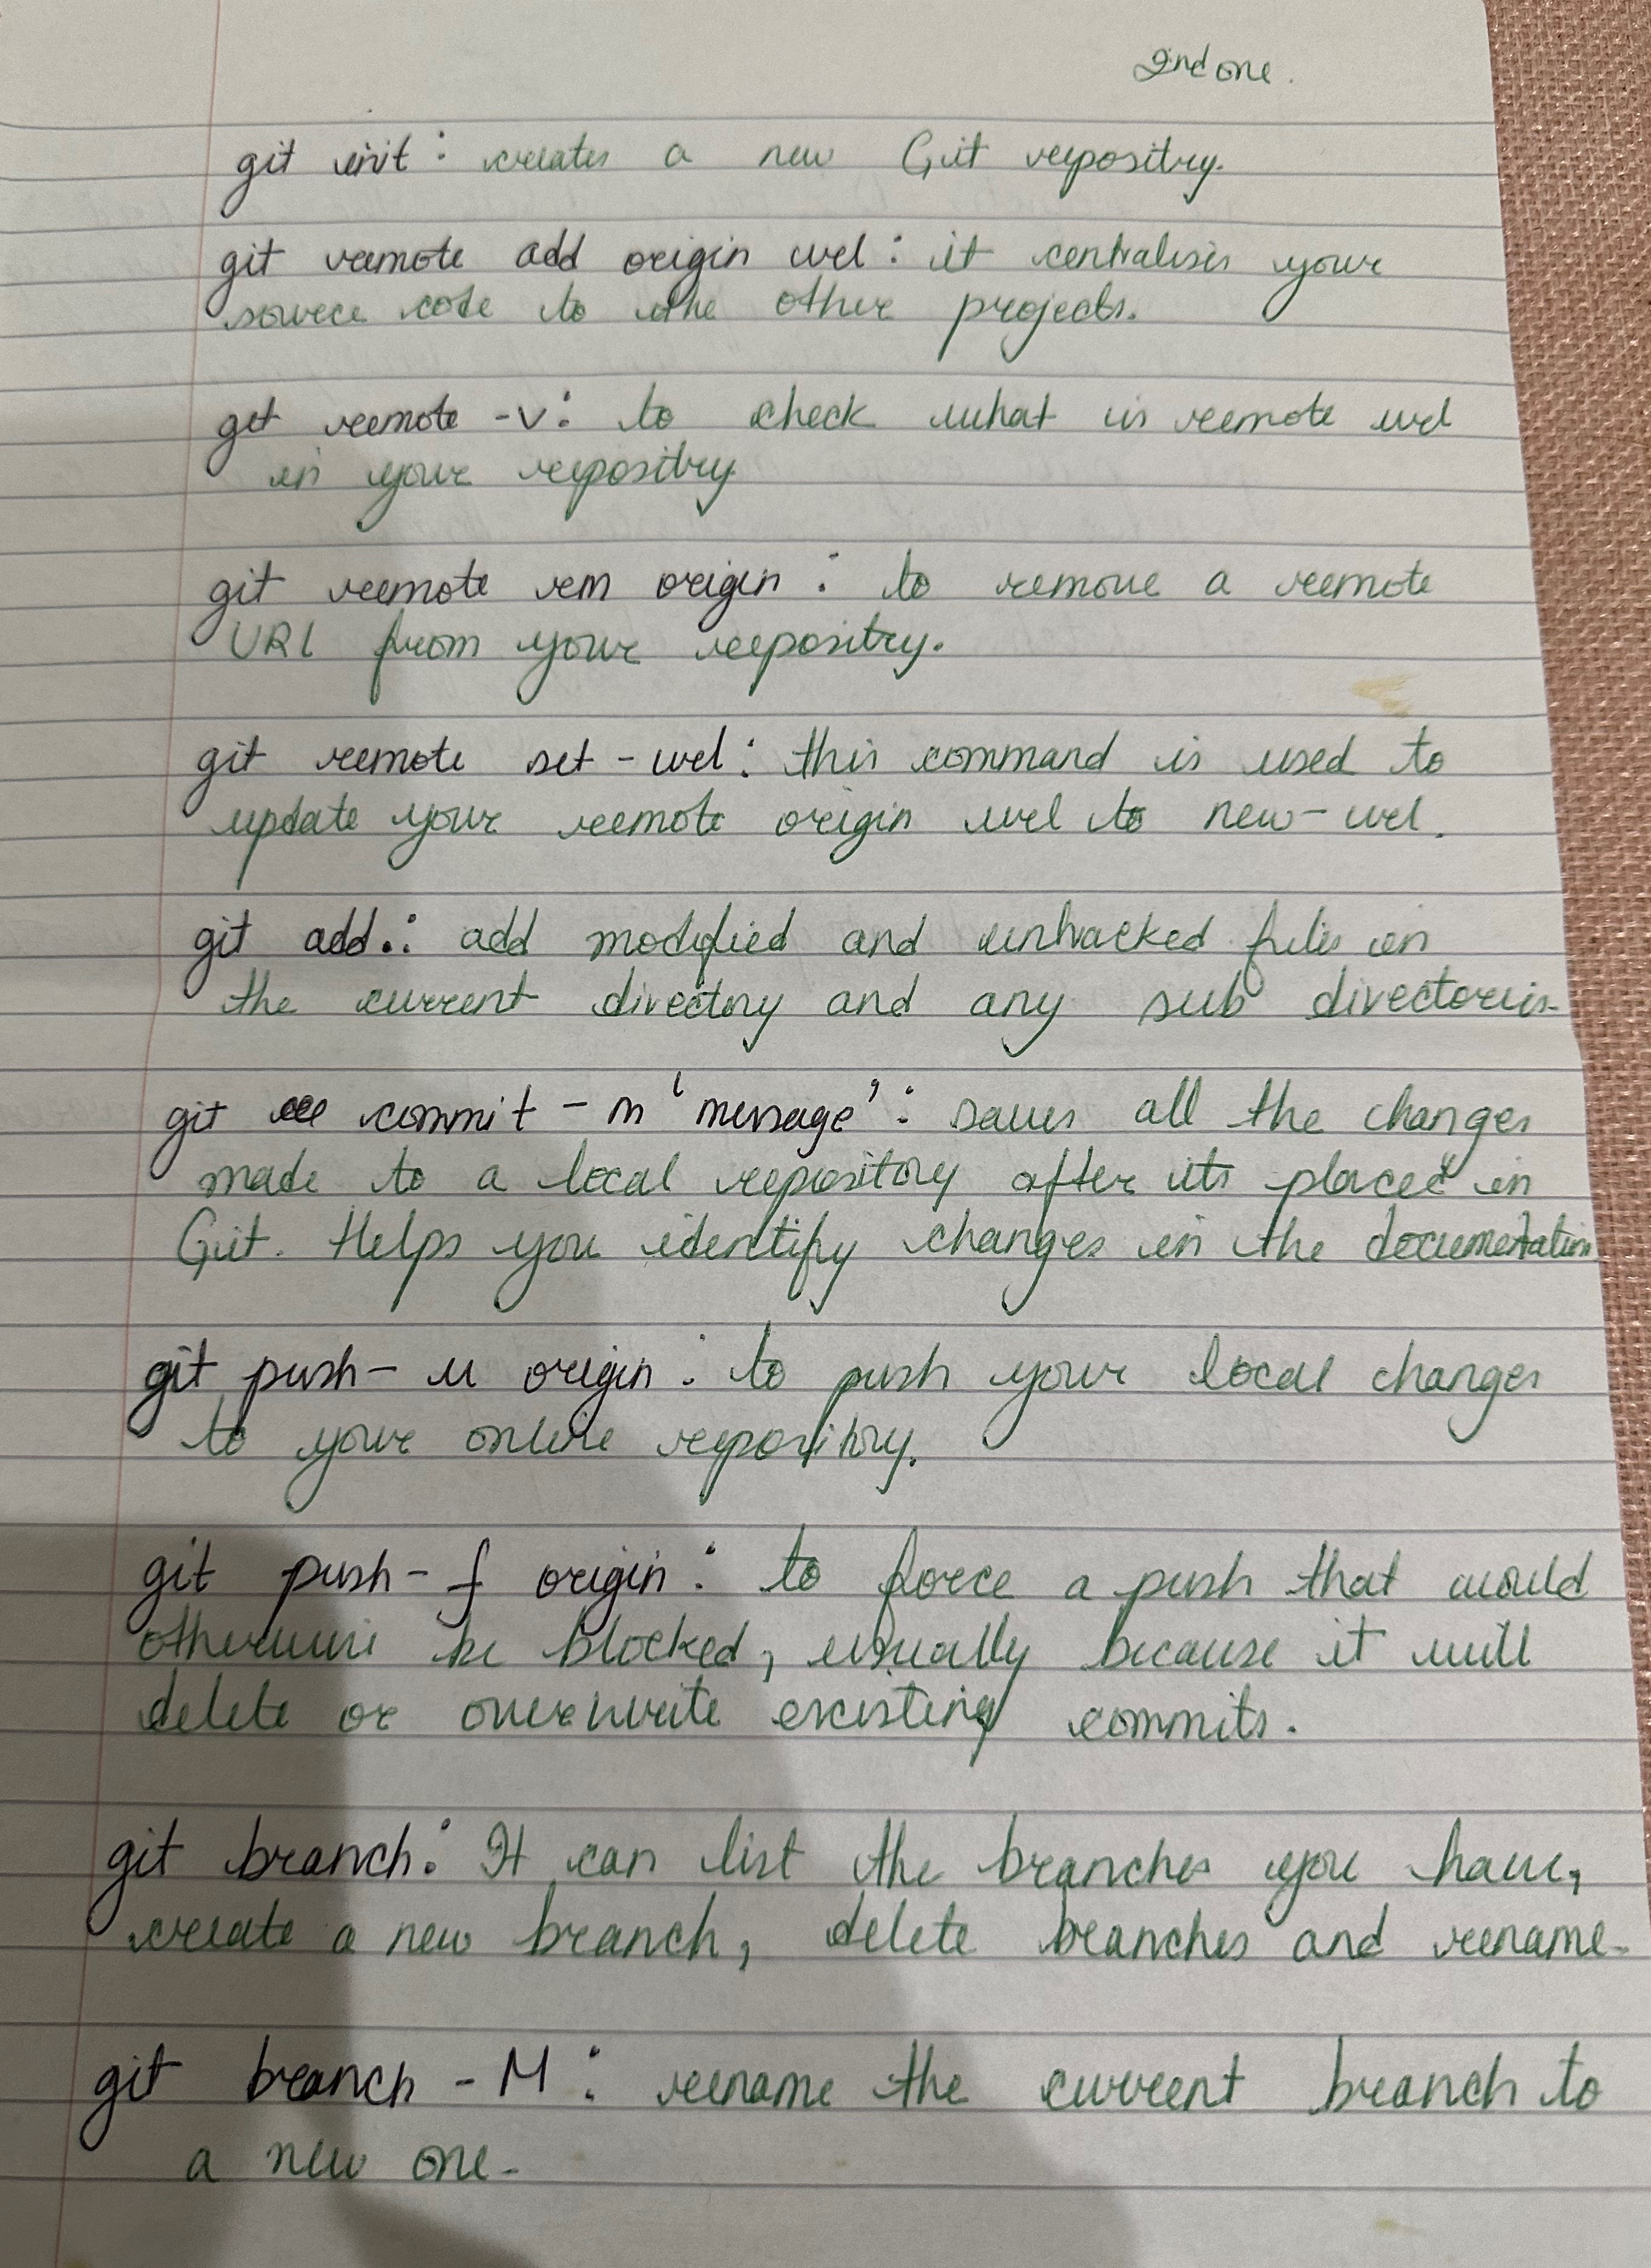 2nd one.
git init : creates a new Git repositry.
git remote add origin url : it centralises your
source code to the other projects.
get remote -v : to check what is remote url
in your repositry
git remote rm origin : to remove a remote
URL from your repositry.
git remote set-url : this command is used to
update your remote origin url to new-url.
git add . : add modified and untracked files in
the current directory and any sub directories.
git commit -m 'message' : saves all the changes
made to a local repository after its placed in
Git. Helps you identify changes in the documentation
git push -u origin : to push your local changes
to your online repository.
git push -f origin : to force a push that would
otherwise be blocked, usually because it will
delete or overwrite existing commits.
git branch : It can list the branches you have,
create a new branch, delete branches and rename.
git branch -M : rename the current branch to
a new one.